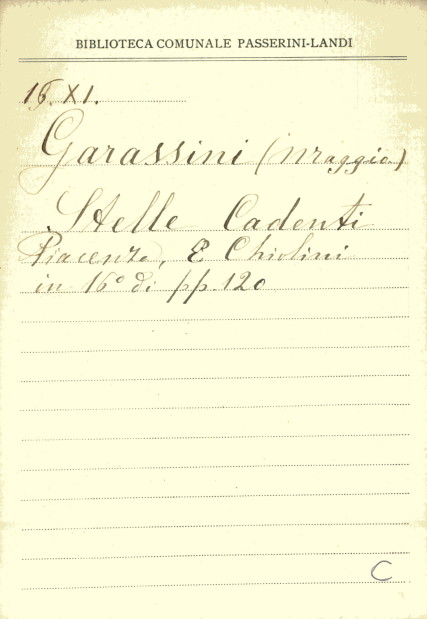 BIBLIOTECA COMUNALE PASSERINI-LANDI
16.XI.
Garassini (Maggio)
Stelle Cadenti
Piacenza, E Chiolini
in 16° di pp. 120
C